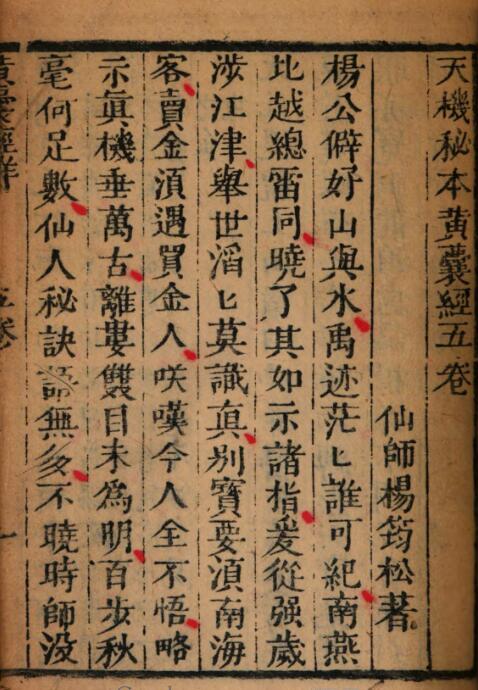 天機秘本黃囊經五卷
仙師楊筠松著
楊公僻好山與水禹迹茫匕誰可紀南燕
比越總雷同曉了其如示諸指爰從强歲
涉江津舉世滔匕莫識眞別寶要湏南海
客賣金湏遇買金人咲嘆今人全不悟略
示眞機垂萬古離婁雙目未為明百步秋
毫何足數仙人秘訣語無多不曉時師没
黃囊經
五卷
一